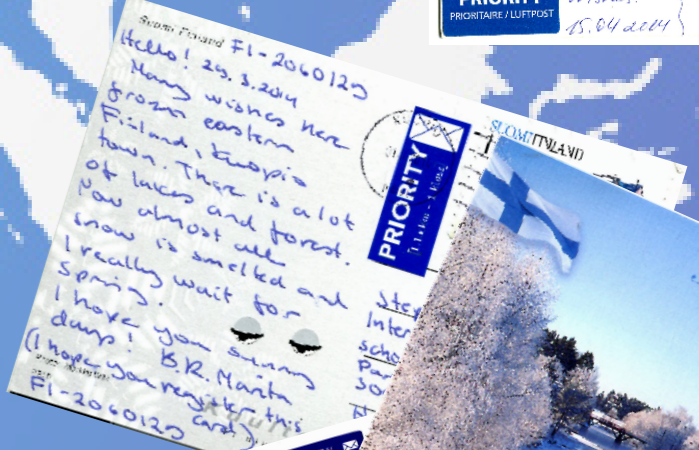 PRIORITY
PRIORITAIRE / LUFTPOST
15.04 2014
Suomi Finland FI-2060129
Hello! 29.3.2014
Many wishes here
from eastern
Finland, Kuopio
town. There is a lot
of lakes and forest.
Now almost all
snow is smelted and
I really wait for
spring.
I hope you sunny
days! B.R. Marita
(I hope you register this
card)
FI-2060129
PRIORITY
SUOMI FINLAND
Inter
scho
Par